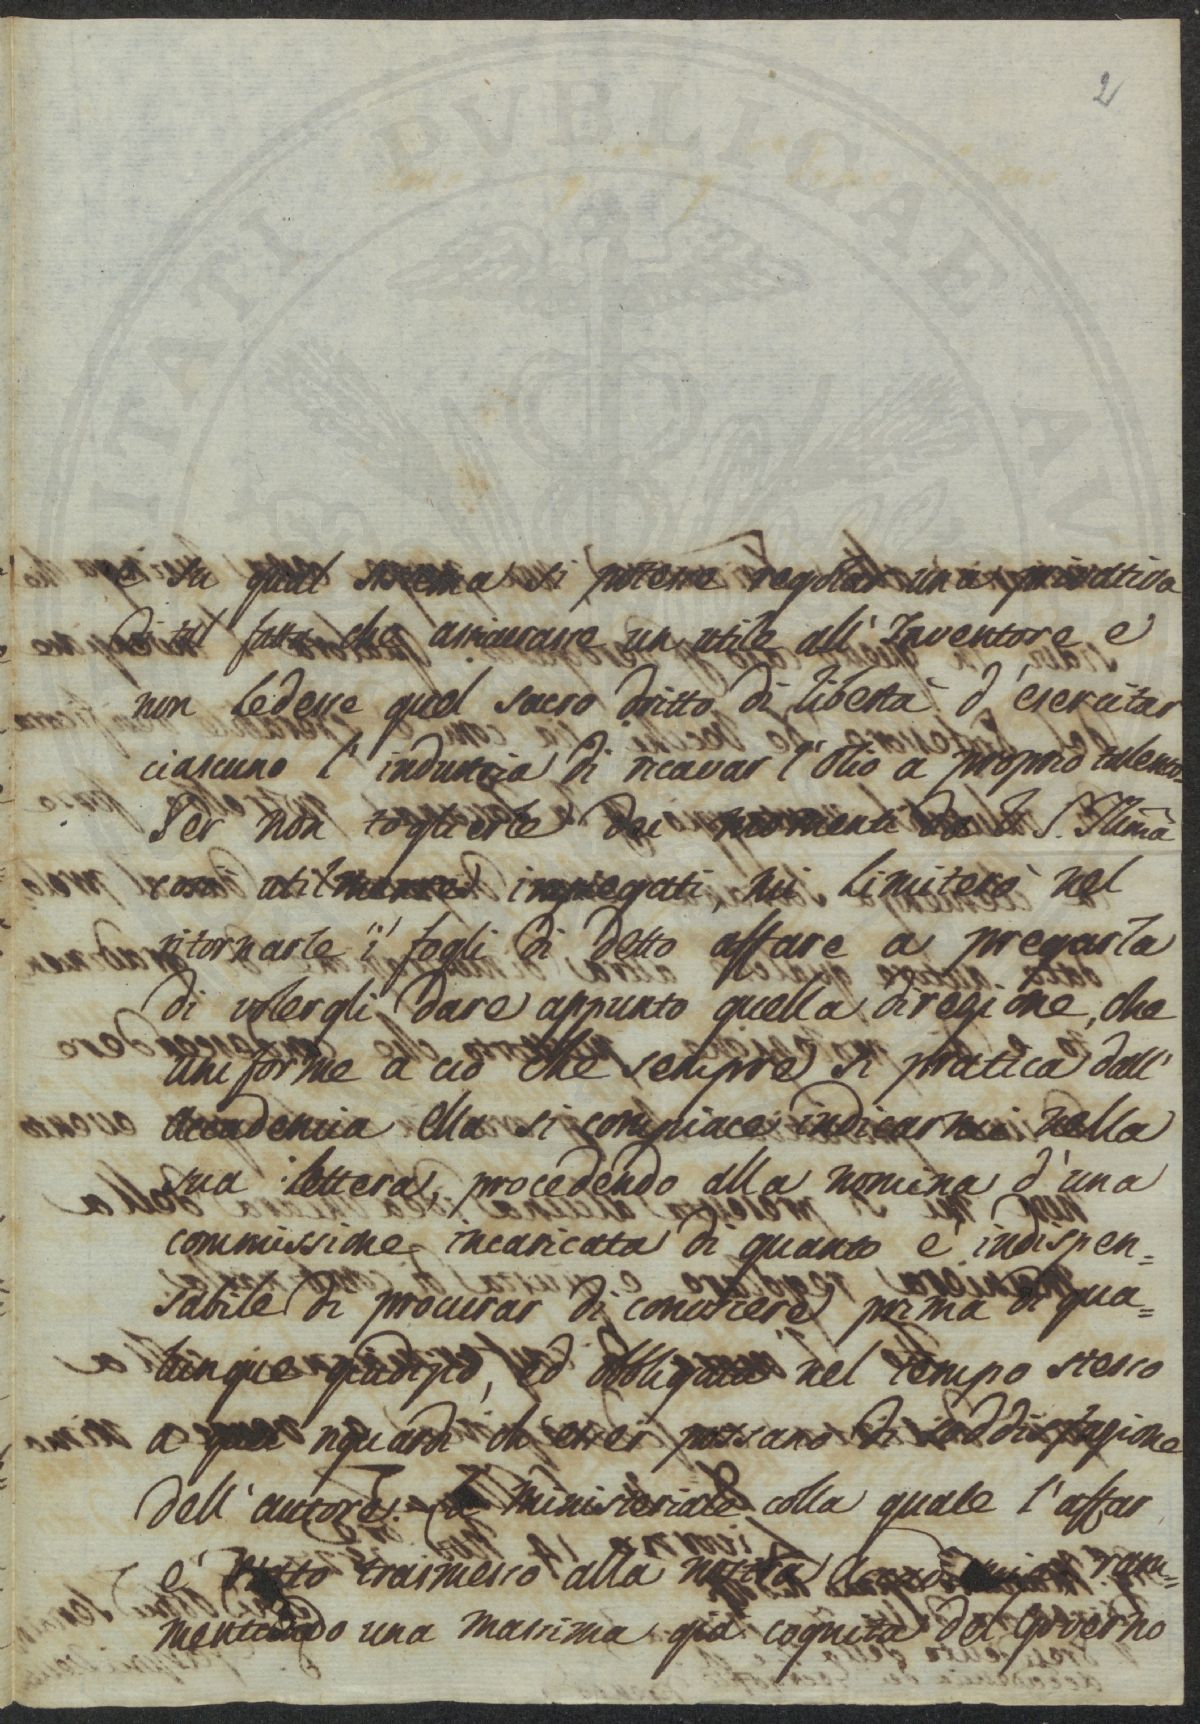 2
PUBLICAE
su qual sistema si potesse regolar una privativa
di tal fatta che assicurasse un utile all' Inventore e
non ledesse quel sacro dritto di libertà d'esercitar
ciascuno l'industria di ricavar l'olio a proprio talento.
Per non toglierle dei momenti da V. S. Illma
così utilmente impiegati, mi limiterò nel
ritornarle i fogli di detto affare a pregarla
di volergli dare appunto quella direzione, che
uniforme a ciò che sempre si pratica dall'
Accademia Ella si compiace indicarmi nella
sua lettera, procedendo alla nomina d'una
commissione incaricata di quanto è indispen=
sabile di procurar di conoscere prima di qua=
lunque giudizio, ed obbligata nel tempo stesso
a quei riguardi ch'esser possano di soddisfazione
dell'autore. La Ministeriale colla quale l'affar
è stato trasmesso alla nostra Accademia ram=
mentando una massima già cognita del Governo